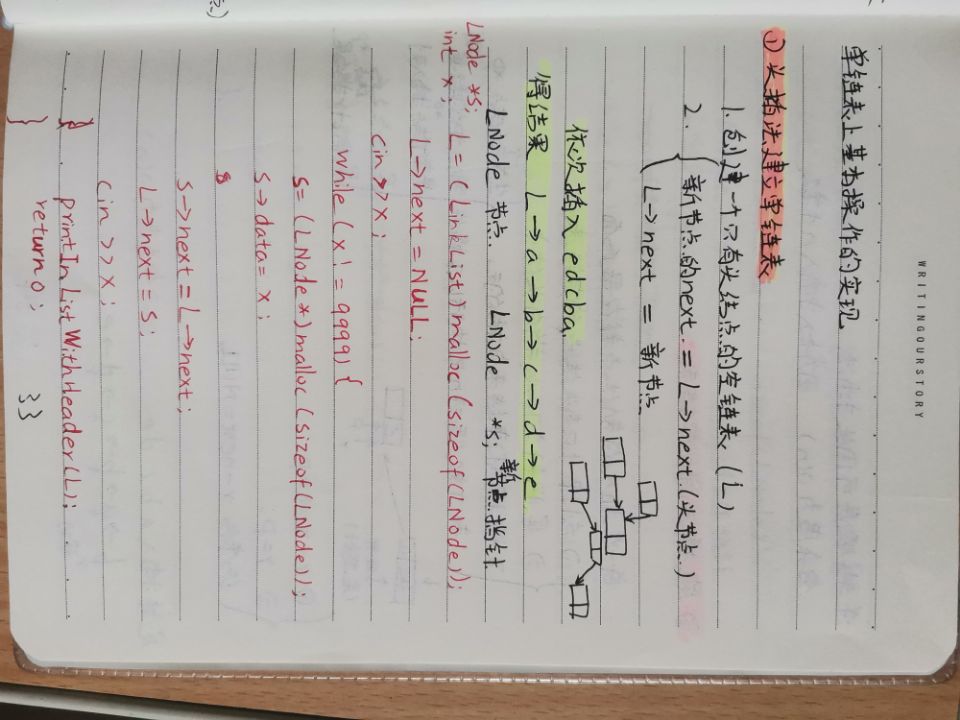 WRITINGOURSTORY
单链表上基本操作的实现
① 头插法建立单链表
1. 创建一个只有头结点的空链表 (L)
2. { 新节点的next = L→next (头节点)
L→next = 新节点
依次插入 edcba
得结果 L→a→b→c→d→e
LNode 节点 LNode *s; 新节点指针
LNode *s; L = (LinkList)malloc(sizeof(LNode));
int x;
L→next = NULL;
cin>>x;
while (x!=9999){
s=(LNode*)malloc(sizeof(LNode));
s→data=x;
s
s→next = L→next;
L→next = s;
cin >>x;
} printInListWithHeader(L);
return 0;
}
33
点)